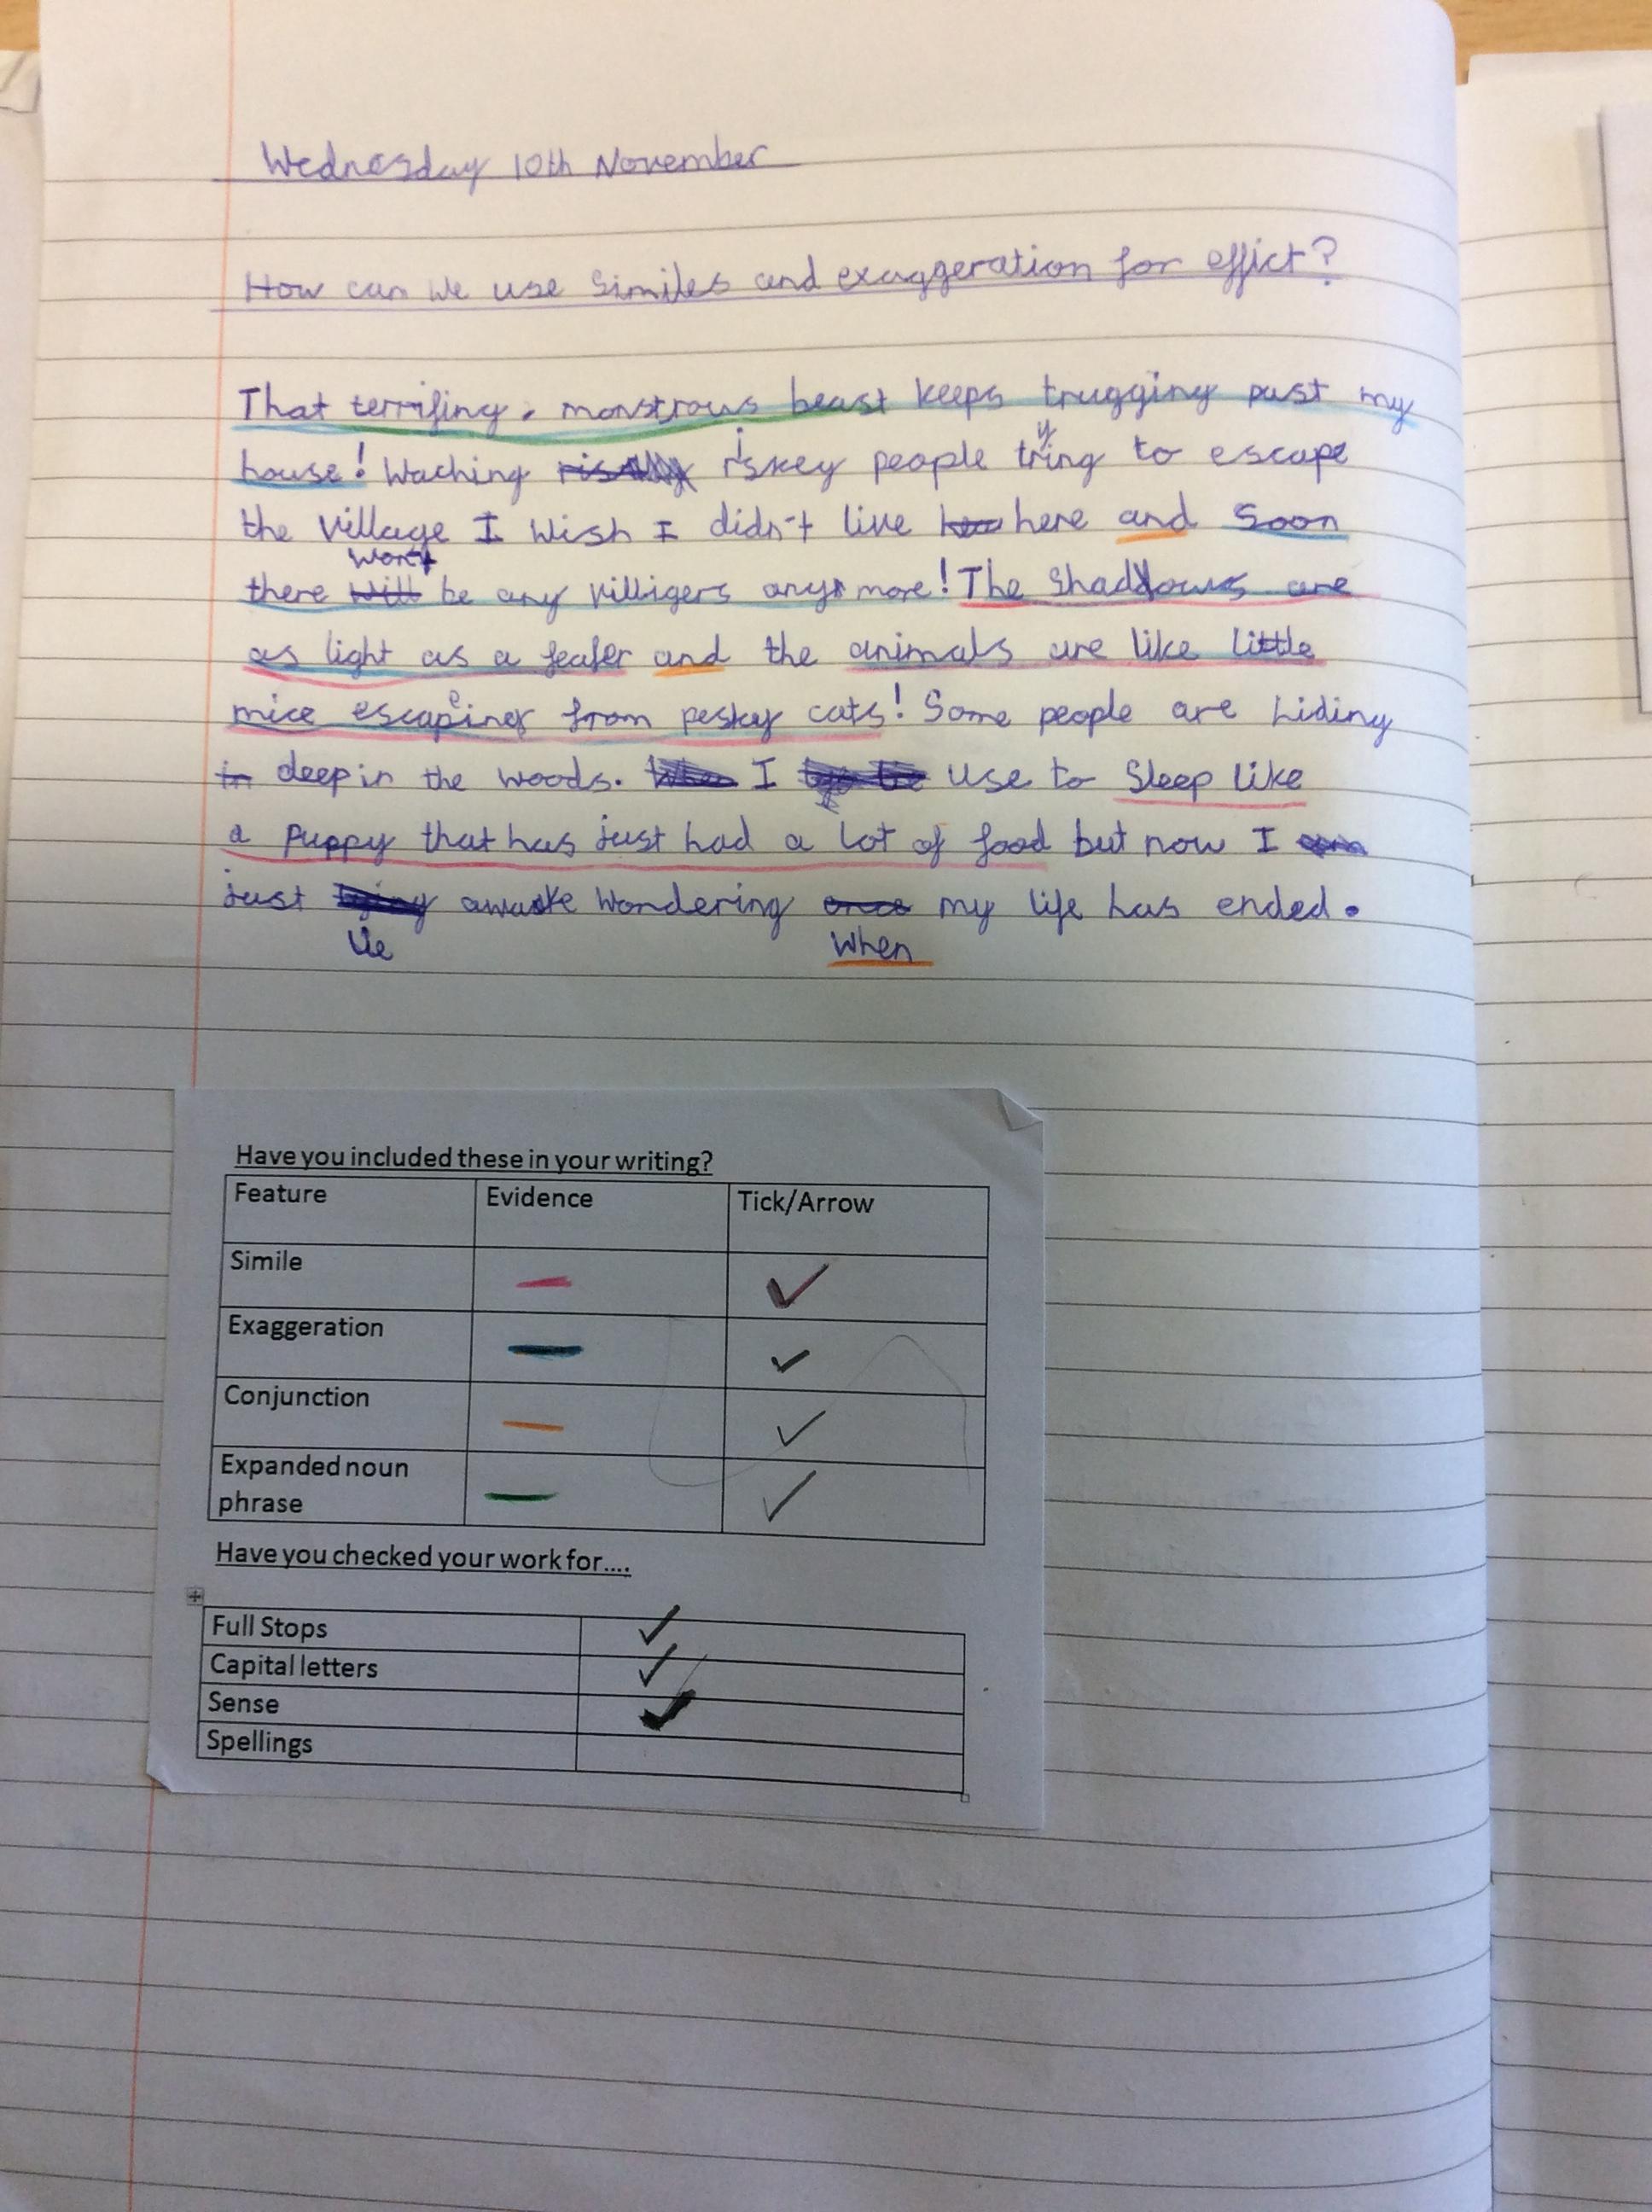 Wednesday 10th November
How can we use similes and exaggeration for effict?
That terrifing, monstrous beast keeps trugging past my
house! Waching riskey people trying to escape
the village I wish I didn't live here and soon
there won't be any villigers any more! The shaddows are
as light as a feafer and the animals are like little
mice escapeing from pesky cats! Some people are hiding
deep in the woods. I use to sleep like
a puppy that has just had a lot of food but now I
just lie awake wondering when my life has ended.
Have you included these in your writing?
Feature Evidence Tick/Arrow
Simile
Exaggeration
Conjunction
Expanded noun
phrase
Have you checked your work for....
Full Stops
Capital letters
Sense
Spellings